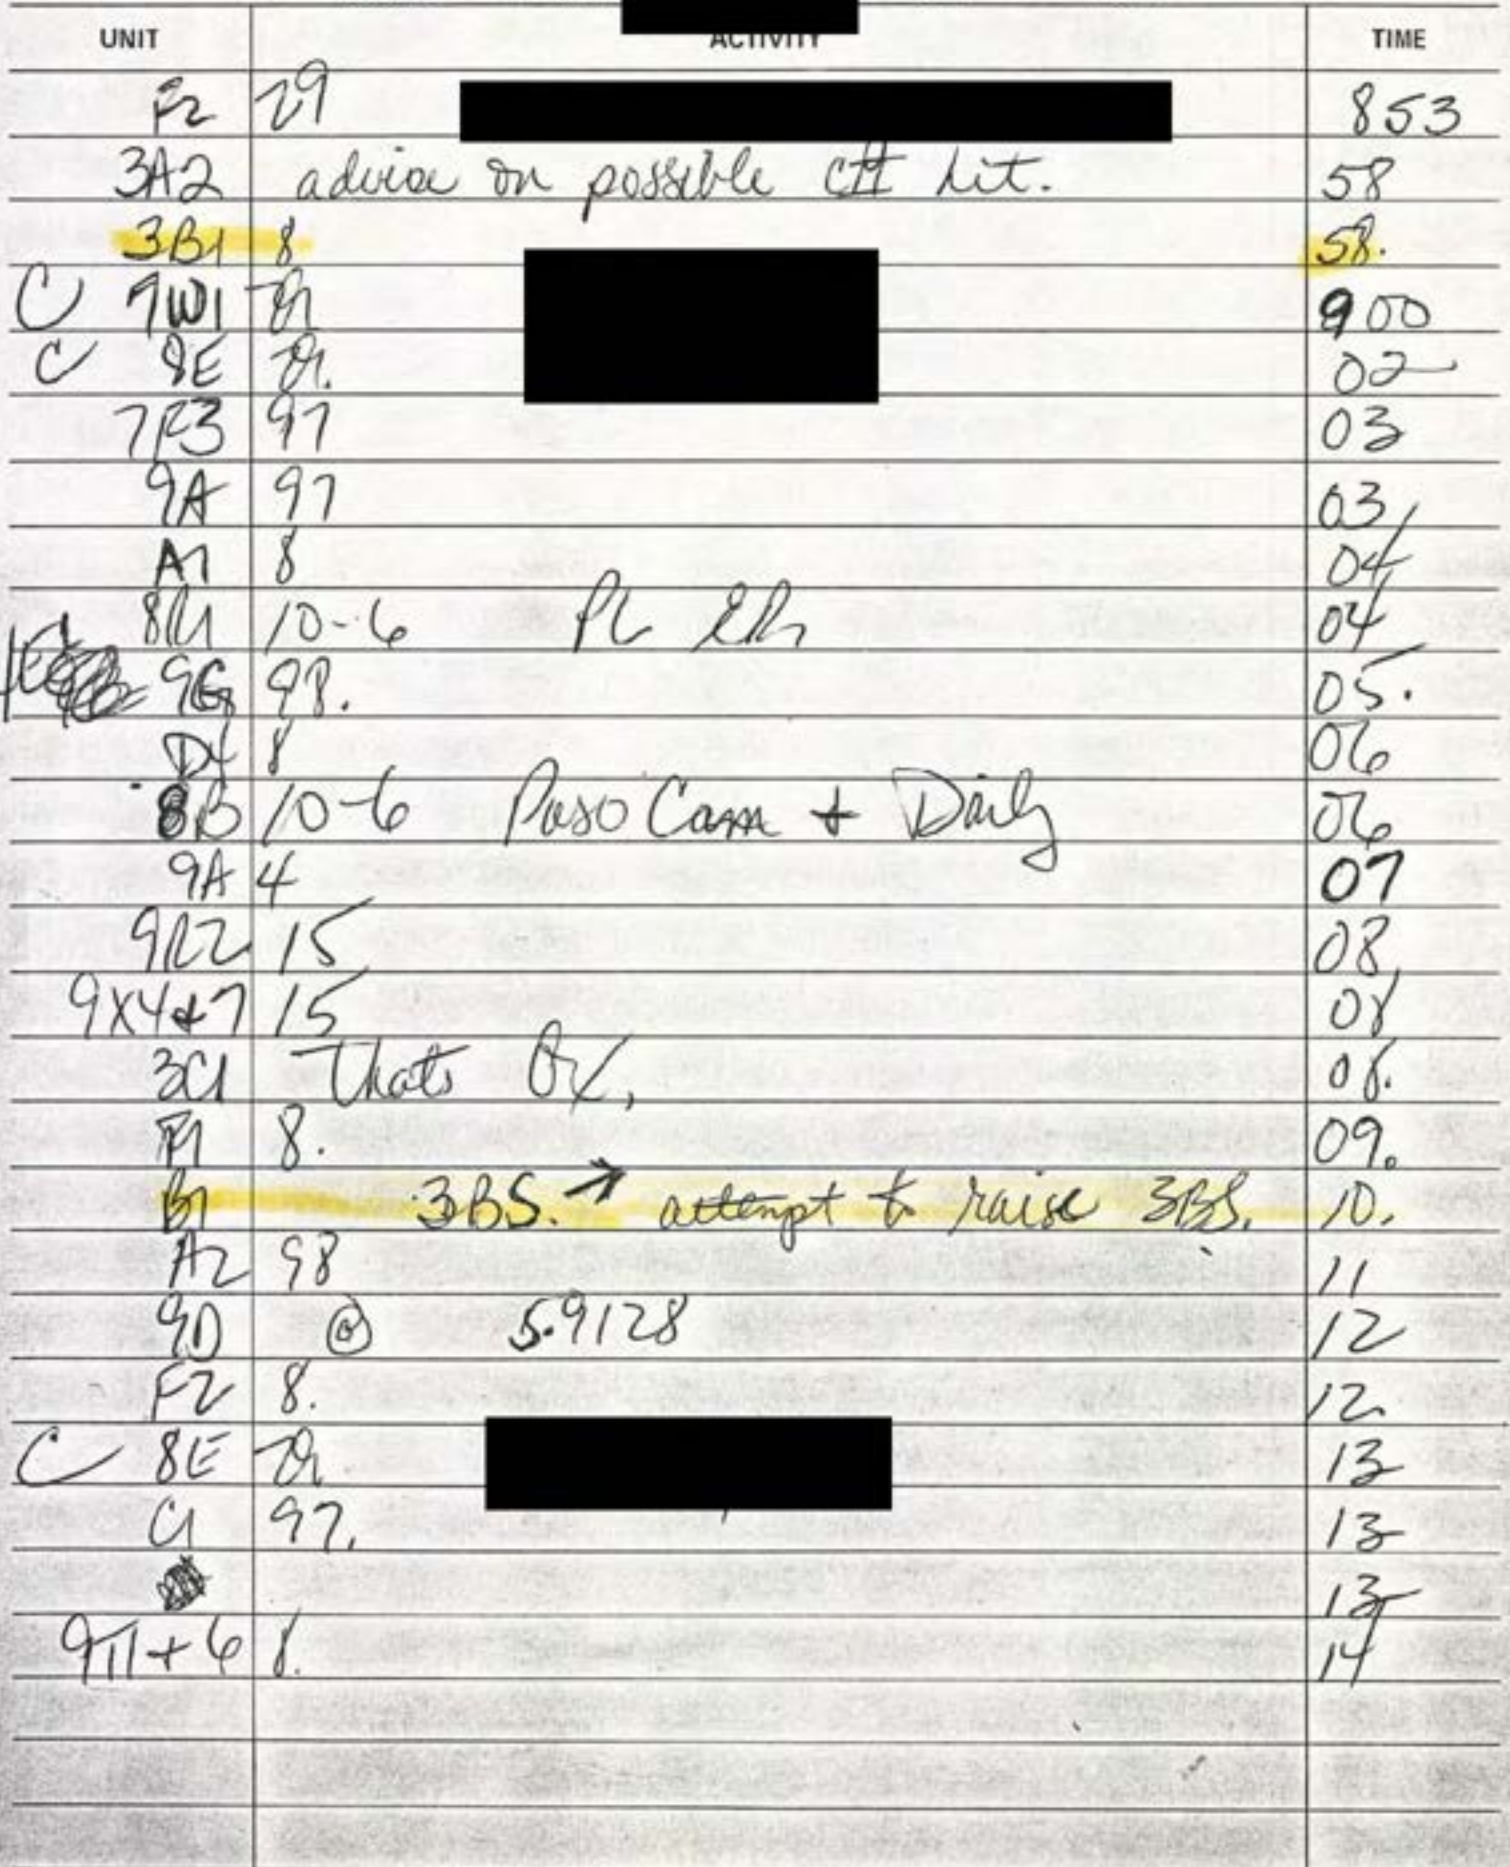 UNIT ACTIVITY TIME
F2 29 853
3A2 advise on possible hit. 58
3B1 8 58.
C 9W1 900
C 8E 02
7F3 97 03
9A 97 03
A1 8 04
10-6 04
9G 98. 05.
D4 8 06
8B 10-6 Paso Cam + Daily 06
9A 4 07
9R2 15 08
9X4+7 15 08
3C1 Thats 08.
F1 8. 09.
B1 3BS. → attempt to raise 3BS. 10.
A2 98 11
9D @ 5.9128 12
F2 8. 12
C 8E 13
C1 97. 13
13
9T1+6 8. 14